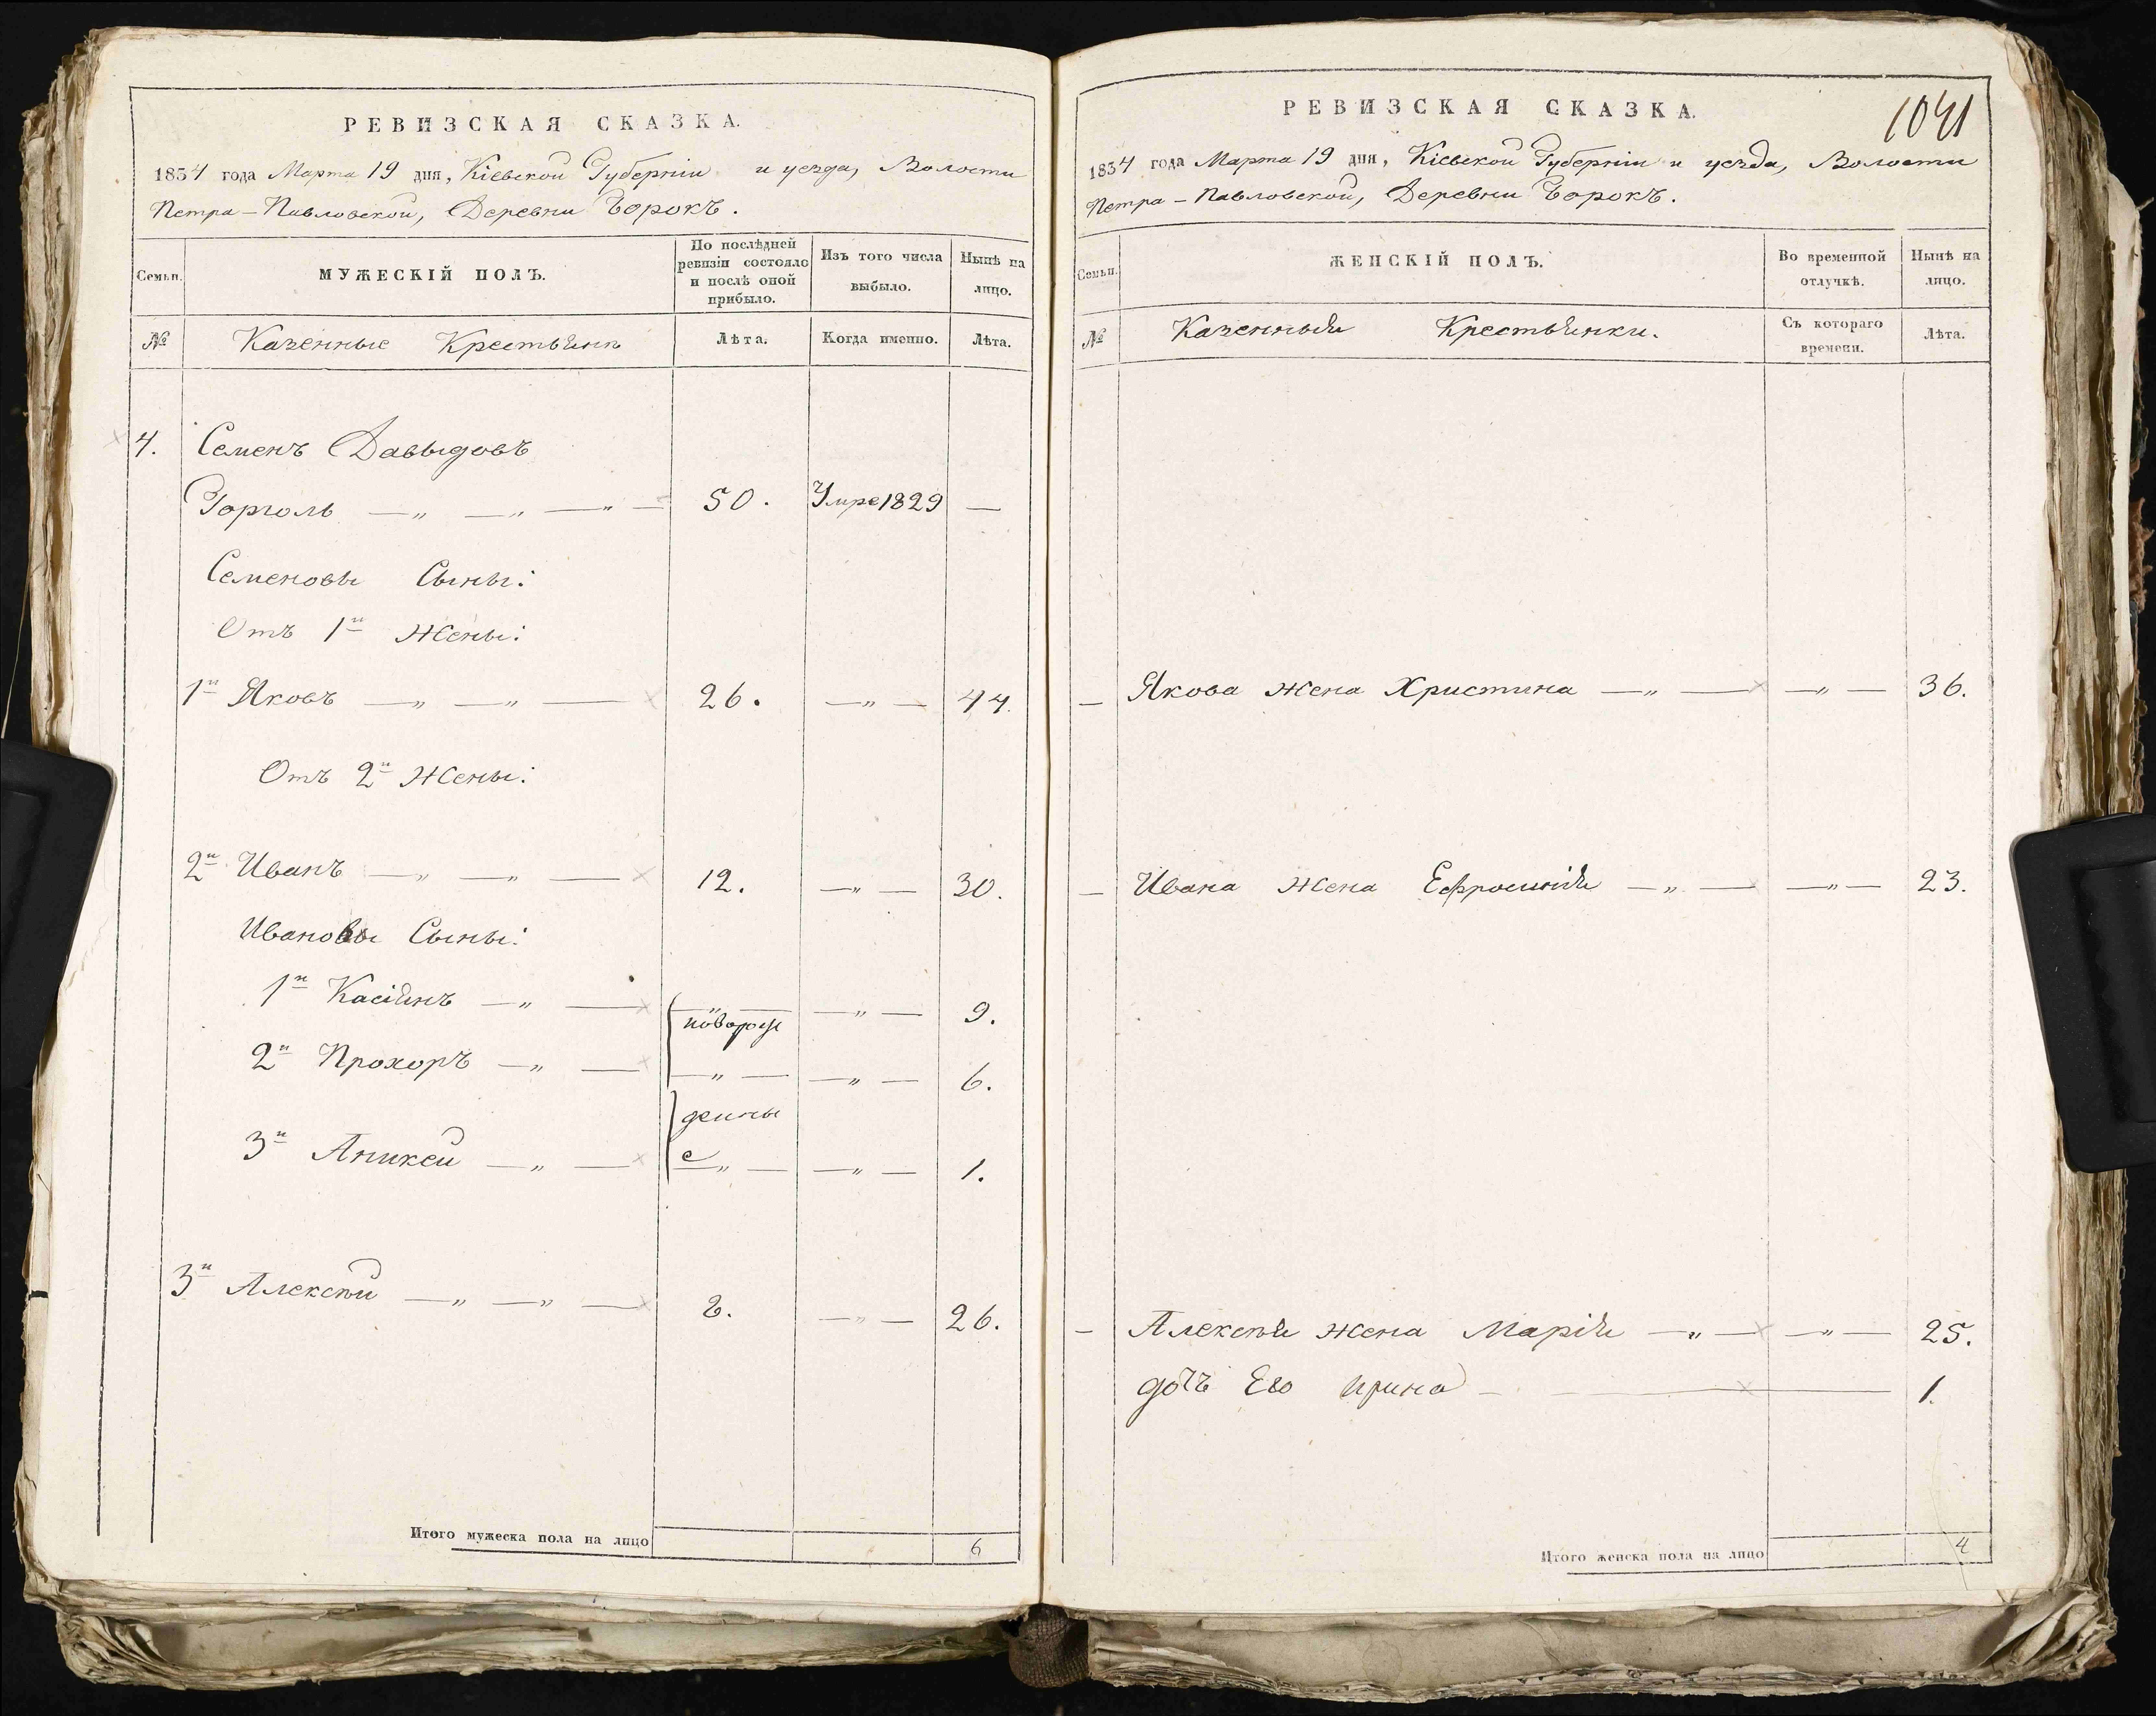 РЕВИЗСКАЯ СКАЗКА.
1834 года Марта 19 дня, Кіевской Губерніи и уезда, Волости
Петра-Павловской, Деревни Борокъ.
Семьи.
МУЖЕСКІЙ ПОЛЪ.
По послѣдней ревизіи состояло и послѣ оной прибыло.
Изъ того числа выбыло.
Нынѣ на лицо.
№
Казенные Крестьяне
Лѣта.
Когда именно.
Лѣта.
4. Семенъ Давыдовъ
Горголь — „ — „ — „ — 50. Умре 1829 —
Семеновы Сыны:
Отъ 1й Жены:
1й Яковъ — „ — „ — 26. — „ — 44.
Отъ 2й Жены:
2й Иванъ — „ — „ — 12. — „ — 30.
Ивановы Сыны:
1й Касіянъ — „ — — „ — 9.
новорож
2й Прохоръ — „ — — „ — — „ — 6.
дены
3й Аникей — „ — е — „ — — „ — 1.
3й Алексѣй — „ — „ — 8. — „ — 26.
Итого мужеска пола на лицо 6
РЕВИЗСКАЯ СКАЗКА.
1041
1834 года Марта 19 дня, Кіевской Губерніи и уезда, Волости
Петра-Павловской, Деревни Борокъ.
Семьи.
ЖЕНСКІЙ ПОЛЪ.
Во временной отлучкѣ.
Нынѣ на лицо.
№
Казенныя Крестьянки.
Съ котораго времени.
Лѣта.
— Якова жена Христина — „ — — „ — 36.
— Ивана жена Ефросинія — „ — — „ — 23.
— Алексѣя жена Марія — „ — — „ — 25.
дочь Его Ирина — — 1.
Итого женска пола на лицо 4